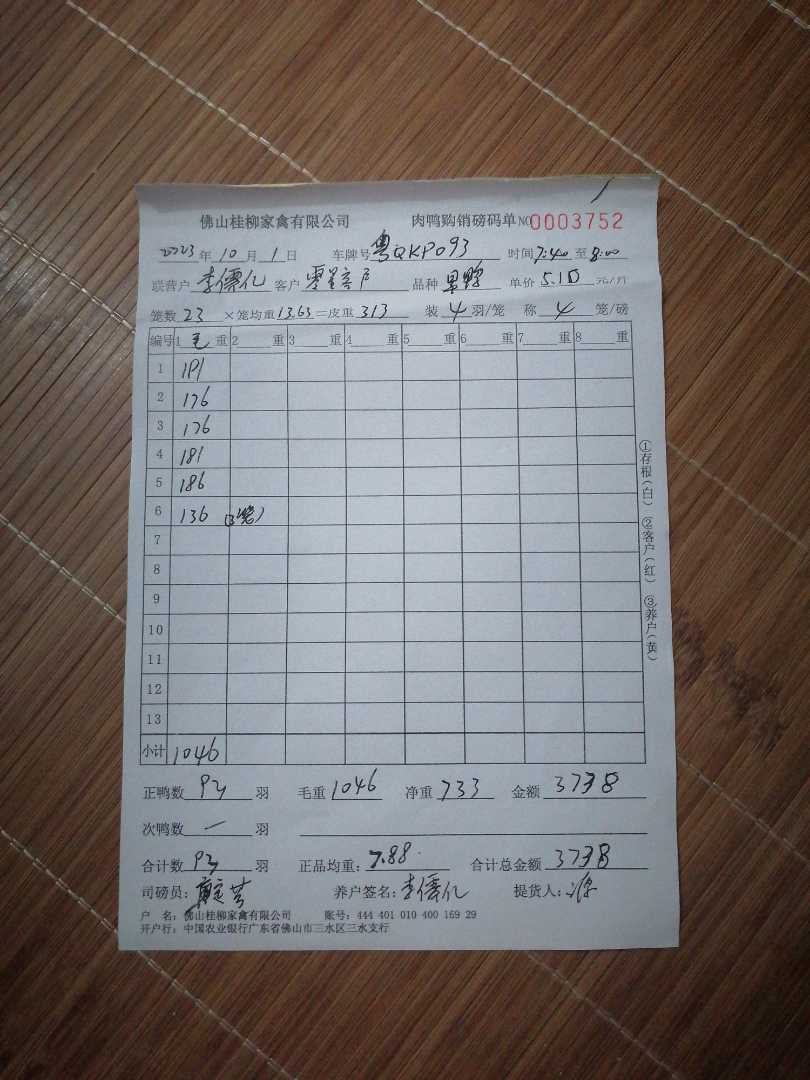 佛山桂柳家禽有限公司 肉鸭购销磅码单 NO 0003752
2023年10月1日 车牌号 粤QKP093 时间 7:40 至 8:00
联营户 李儒亿 客户 零星客户 品种 单价 5.10 元/斤
笼数 23 ×笼均重 13.63 =皮重 313 装 4 羽/笼 称 4 笼/磅
编号 1 毛 重 2 重 3 重 4 重 5 重 6 重 7 重 8 重
1 191
2 176
3 176
4 181
5 186
6 136 (3笼)
7
8
9
10
11
12
13
小计 1046
正鸭数 92 羽 毛重 1046 净重 733 金额 3738
次鸭数 一 羽
合计数 92 羽 正品均重: 7.88 合计总金额 3738
司磅员: 养户签名: 李儒亿 提货人:
户 名: 佛山桂柳家禽有限公司 账号: 444 401 010 400 169 29
开户行: 中国农业银行广东省佛山市三水区三水支行
①存根(白) ②客户(红) ③养户(黄)